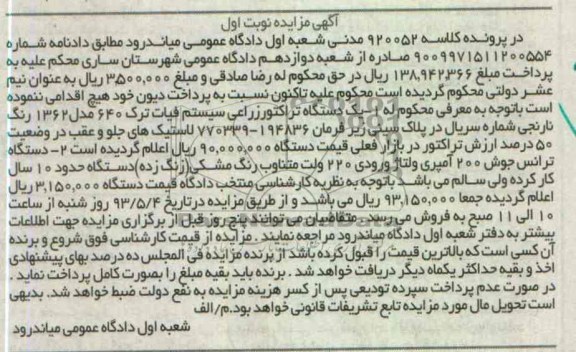 آگهی مزایده نوبت اول
در پرونده کلاسه ۹۲۰۰۵۲ مدنی شعبه اول دادگاه عمومی میاندرود مطابق دادنامه شماره
۹۰۰۹۹۷۱۵۱۱۲۰۰۵۵۴ صادره از شعبه دوازدهم دادگاه عمومی شهرستان ساری محکم علیه به
پرداخت مبلغ ۱۳۸,۹۴۲,۳۶۶ ریال در حق محکوم له رضا صادقی و مبلغ ۳۵۰۰,۰۰۰ ریال به عنوان نیم
عشر دولتی محکوم گردیده است محکوم علیه تاکنون نسبت به پرداخت دیون خود هیچ اقدامی ننموده
است باتوجه به معرفی محکوم له ۱- یک دستگاه تراکتور زراعی سیستم فیات ترک ۶۴۰ مدل ۱۳۶۲ رنگ
نارنجی شماره سریال در پلاک سینی زیر فرمان ۱۹۴۸۳۶-۷۷۰۳۳۹ لاستیک های جلو و عقب در وضعیت
۵۰ درصد ارزش تراکتور در بازار فعلی قیمت دستگاه ۹۰,۰۰۰,۰۰۰ ریال اعلام گردیده است ۲- دستگاه
ترانس جوش ۲۰۰ آمپری ولتاژ ورودی ۲۲۰ ولت متناوب رنگ مشکی (زنگ زده) دستگاه حدود ۱۰ سال
کار کرده ولی سالم می باشد باتوجه به نظریه کارشناسی منتخب دادگاه قیمت دستگاه ۳,۱۵۰,۰۰۰ ریال
اعلام گردیده جمعا ۹۳,۱۵۰,۰۰۰ ریال می باشد و از طریق مزایده در تاریخ ۹۳/۵/۴ روز شنبه از ساعت
۱۰ الی ۱۱ صبح به فروش می رسد. متقاضیان می توانند پنج روز قبل از برگزاری مزایده جهت اطلاعات
بیشتر به دفتر شعبه اول دادگاه میاندرود مراجعه نمایند. مزایده از قیمت کارشناسی فوق شروع و برنده
آن کسی است که بالاترین قیمت را قبول کرده باشد از برنده مزایده فی المجلس ده درصد بهای پیشنهادی
اخذ و بقیه حداکثر یکماه دیگر دریافت خواهد شد. برنده باید بقیه مبلغ را بصورت کامل پرداخت نماید.
در صورت عدم پرداخت سپرده تودیعی پس از کسر هزینه مزایده به نفع دولت ضبط خواهد شد. بدیهی
است تحویل مال مورد مزایده تابع تشریفات قانونی خواهد بود.م/الف
شعبه اول دادگاه عمومی میاندرود